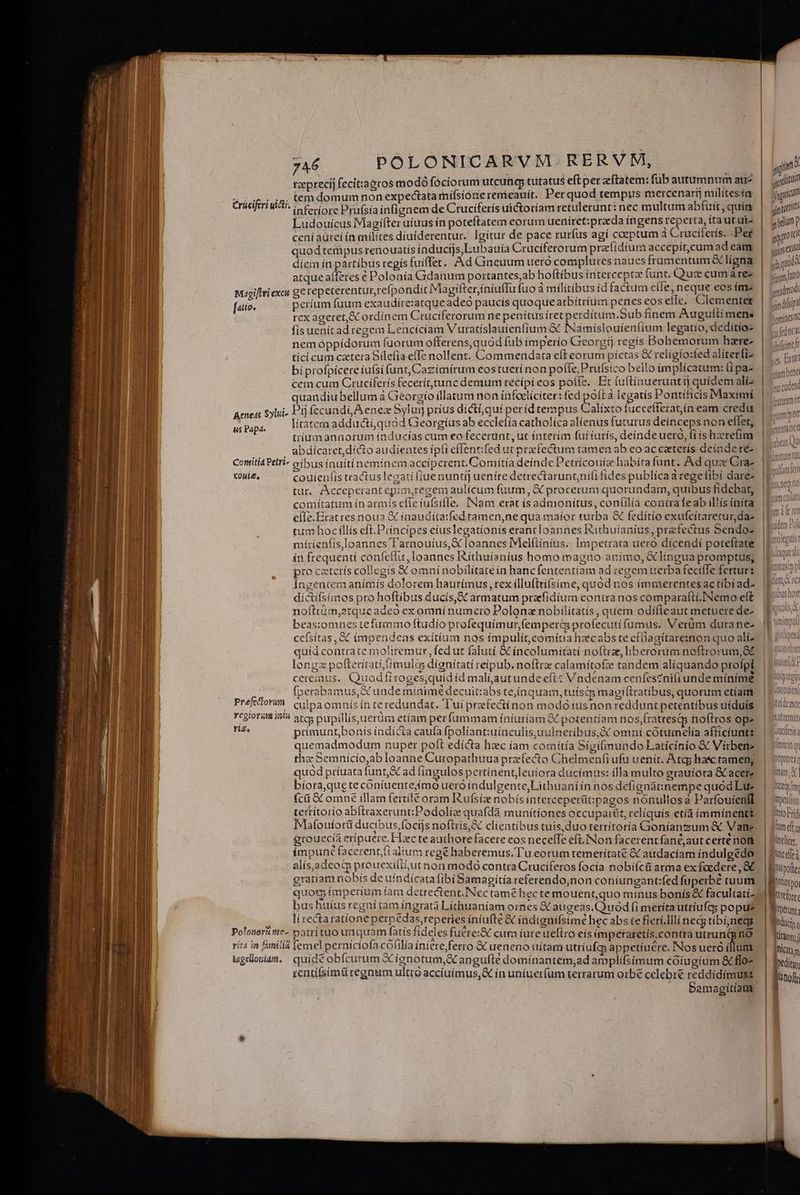 746 POLONICARVM RERVM,
reprecij fecit: agros modò sociorum utcunq; tutatus est per æstatem: sub autumnum au-
tem domum non expectata missione remeauit. Per quod tempus mercenarij milites in
Cruciferi uicti. inferiore Prussia insignem de Cruciferis uictoriam retulerunt: nec multum abfuit, quin
Ludouicus Magister uiuus in potestatem eorum ueniret: præda ingens reperta, ita ut ui-
ceni aurei in milites diuiderentur. Igitur de pace rursus agi cœptum à Cruciferis. Per
quod tempus renouatis inducijs, Lubauia Cruciferorum præsidium accepit, cum ad eam
diem in partibus regis fuisset. Ad Gneuum uerò complures naues frumentum & ligna
atque asseres è Polonia Gdanum portantes, ab hostibus interceptæ sunt. Quæ cum à re-
Magistri excu ge repeterentur, respondit Magister, iniussu suo à militibus id factum esse, neque eos im-
satio. perium suum exaudire: atque adeo paucis quoque arbitrium penes eos esse. Clementer
rex ageret, & ordinem Cruciferorum ne penitus iret perditum. Sub finem Augusti mens
sis uenit ad regem Lencíciam Vuratislauiensium & Namislouiensium legatio, deditio-
nem oppidorum suorum offerens, quòd sub imperio Georgij regis Bohemorum hære-
tici cum cætera Silesia esse nollent. Commendata est eorum pietas & religio: sed aliter si-
bi prospicere iussi sunt, Cazimirum eos tueri non posse, Prussico bello implicatum: si pa-
cem cum Cruciferis fecerit, tunc demum recipi eos posse. Et sustinuerunt ij quidem ali-
quandiu bellum à Georgio illatum non infœliciter: sed pòst à legatis Pontificis Maximi
Aeneas Sylui- Pij secundi, Aeneæ Syluij prius dicti, qui per id tempus Calixto successerat, in eam credu
us Papa. litatem adducti, quòd Georgius ab ecclesia catholica alienus futurus deinceps non esset,
trium annorum inducias cum eo fecerunt, ut interim sui iuris, deinde uerò, si is hæresim
abdicaret, dicto audientes ipsi essent: sed ut præfectum tamen ab eo ac cæteris deinde re-
Comitia Petri- gibus inuiti neminem acciperent. Comitia deinde Petricouiæ habita sunt. Ad quæ Cra-
couiæ, couiensis tractus legati siue nuntij uenire detrectarunt, nisi fides publica à rege sibi dare-
tur. Acceperant enim, regem aulicum suum, & procerum quorundam, quibus fidebat,
comitatum in armis esse iussisse. Nam erat is admonitus, consilia contra se ab illis inita
esse. Erat res noua & inaudita: sed tamen, ne qua maior turba & seditio exuscitaretur, da-
tum hoc illis est. Principes eius legationis erant Ioannes Rithuianius, præfectus Sendo-
miriensis, Ioannes Tarnouius, & Ioannes Melstinius. Impetrata uerò dicendi potestate
in frequenti consessu, Ioannes Rithuianius homo magno animo, & lingua promptus,
pro cæteris collegis & omni nobilitate in hanc sententiam ad regem uerba fecisse fertur:
Ingentem animis dolorem haurimus, rex illustrissime, quòd nos immerentes ac tibi ad-
dictissimos pro hostibus ducis, & armatum præsidium contra nos comparasti. Nemo est
nostrûm, atque adeò ex omni numero Polonæ nobilitatis, quem odisse aut metuere de-
beas: omnes te summo studio prosequimur, semperq; prosecuti sumus. Verùm dura ne-
cessitas, & impendens exitium nos impulit, comitia hæc abs te efflagitare: non quo ali-
quid contra te moliremur, sed ut saluti & incolumitati nostræ, liberorum nostrorum, &
longæ posteritati, simulq; dignitati reipub. nostræ calamitosæ tandem aliquando prospi
ceremus. Quod si roges, quid id mali, aut unde est: Vndenam censes: nisi unde minimè
sperabamus, & unde minimè decuit: abs te, inquam, tuisq; magistratibus, quorum etiam
Præfectorum culpa omnis in te redundat. Tui præfecti non modò ius non reddunt petentibus uiduis
regiorum iniu atq; pupillis, uerùm etiam per summam iniuriam & potentiam nos, fratresq; nostros op-
riæ. primunt, bonis indicta causa spoliant: uinculis, uulneribus, & omni cōtumelia afficiunt:
quemadmodum nuper post edicta hæc iam comitia Sigismundo Laticinio & Vitben-
thæ Semnicio, ab Ioanne Curopathuua præfecto Chelmensi usu uenit. Atq; hæc tamen,
quòd priuata sunt, & ad singulos pertinent, leuiora ducimus: illa multo grauiora & acer-
biora, quæ te cōniuente, imò uerò indulgente, Lithuani in nos designāt: nempe quòd Lu-
scū & omnē illam fertilē oram Russiæ nobis interceperūt: pagos nōnullos à Parsouiensi
territorio abstraxerunt: Podoliæ quasdā munitiones occuparūt, reliquis etiā imminent:
Masouiorū ducibus, socijs nostris, & clientibus tuis, duo territoria Gonianzum & Vane
grouecíā eripuere. Hæc te authore facere eos necesse est. Non facerent sanè, aut certè non
impunè facerent, si alium regē haberemus. Tu eorum temeritatē & audaciam indulgēdo
alis, adeoq; prouexisti, ut non modò contra Cruciferos socia nobiscū arma ex fœdere, &
gratiam nobis de uindicata sibi Samagitia referendo, non coniungant: sed superbè tuum
quoq; imperium iam detrectent. Nec tamē hec te mouent, quo minus bonis & facultati-
bus huius regni tam ingratā Lithuaniam ornes & augeas. Quòd si merita utriusq; popu-
li recta ratione perpēdas, reperies iniustè & indignissimè hec abs te fieri. Illi necq; tibi, neq;
Polonorū me- patri tuo unquam satis fideles fuēre: & cum iure uestro eis imperaretis, contra utrunq; nō
rita in familiā semel perniciosa cōsilia iniēre, ferro & ueneno uitam utriusq; appetiuēre. Nos uerò illum
Iagelloniam. quidē obscurum & ignotum, & angustè dominantem, ad amplissimum cōiugium & flo-
rentissimū regnum ultrò acciuimus, & in uniuersum terrarum orbē celebrē reddidimus:
Samagitiam